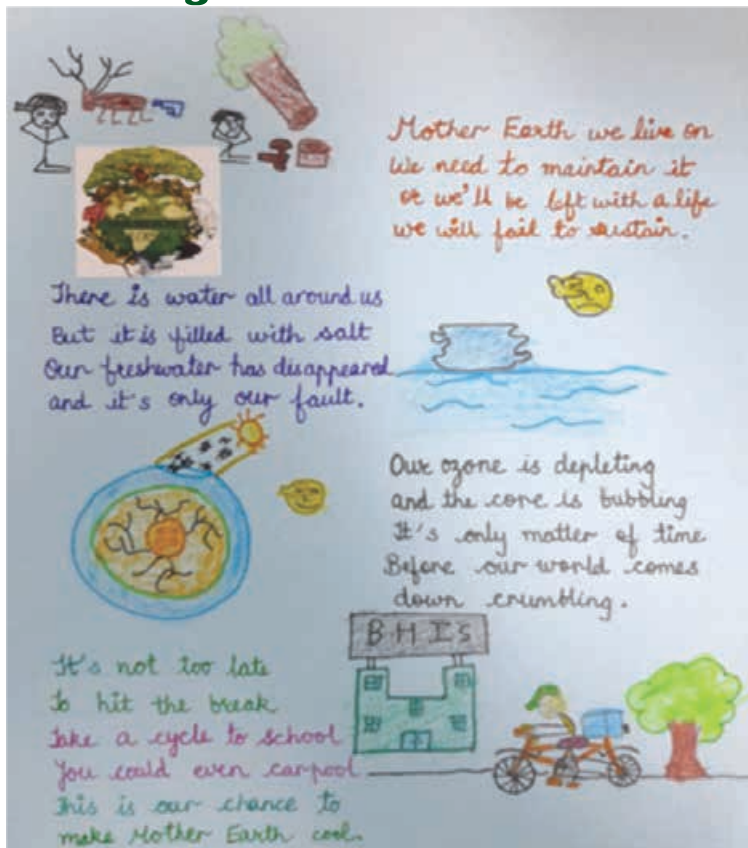 Mother Earth we live on
We need to maintain it
or we'll be left with a life
we will fail to sustain.
There is water all around us
But it is filled with salt
Our freshwater has disappeared
and it's only our fault.
Our ozone is depleting
and the core is bubbling
It's only matter of time
Before our world comes
down crumbling.
BHIS
It's not too late
To hit the break
Take a cycle to school
You could even carpool
This is our chance to
make Mother Earth cool.